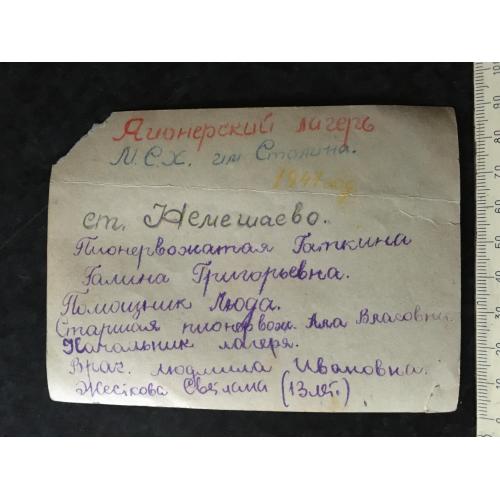 Пионерский лагерь
М.С.Х. им Сталина.
194 год
ст. Немешаево.
Пионервожатая Гаткина
Галина Григорьевна.
Помощник Люда.
Старшая пионервож. Алла Власовна.
Начальник лагеря.
Врач. Людмила Ивановна.
(13 лет.)